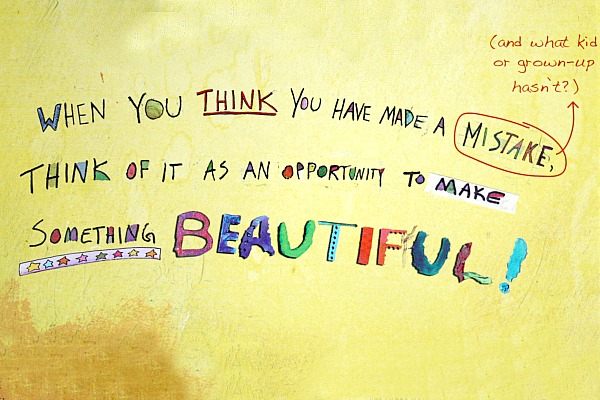 (and what kid
or grown-up
hasn't?)
WHEN YOU THINK YOU HAVE MADE A MISTAKE,
THINK OF IT AS AN OPPORTUNITY TO MAKE
SOMETHING BEAUTIFUL!